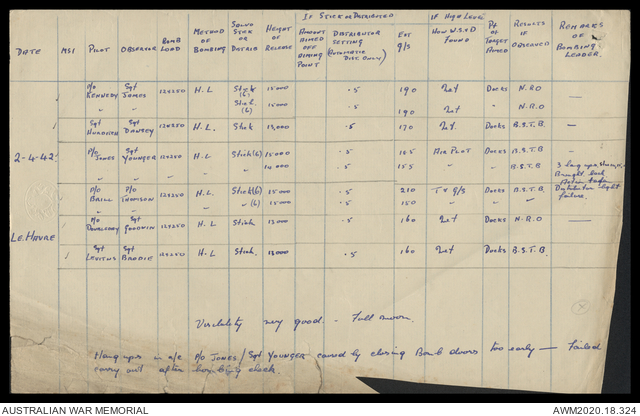 IF STICK OR DISTRIBUTED
DATE MSI PILOT OBSERVER BOMB LOAD METHOD OF BOMBING SALVO STICK OR DISTRIB HEIGHT OF RELEASE AMOUNT AIMED OFF AIMING POINT DISTRIBUTOR SETTING (AUTOMATIC DISC ONLY) EST G/S IF HIGH LEVEL HOW W.S & D FOUND PT OF TARGET AIMED RESULTS IF OBSERVED REMARKS OF BOMBING LEADER.
P/O KENNEDY Sgt JONES 12x250 H.L Stick (6) 15000 .5 190 Let Docks N.R.O —
" " Stick (6) 15000 .5 190 Let " N.R.O
Sgt Sgt DANSEY 12x250 H.L. Stick 13,000 .5 170 Let. Docks B.S.T.B. —
2-4-42 P/O JONES Sgt YOUNGER 12x250 H.L Stick (6) 15000 .5 AIR PLOT Docks B.S.T.B
" " 14000 .5 155 " " B.S.T.B 3 hang ups
Brought back
P/O BRILL P/O THOMSON 12x250 H.L Stick (6) 15000 .5 210 T & G/S Docks B.S.T.B Distributor light failure.
" " " (6) 15000 .5 150 " " "
LE HAVRE P/O DOUBLEDAY Sgt GOODWIN 12x250 H.L Stick 13000 .5 160 Let Docks N.R.O —
Sgt LEVITUS Sgt BRODIE 12x250 H.L Stick. 13000 .5 160 Let Docks B.S.T.B.
Visibility very good. - Full moon.
Hang ups in a/c P/O JONES / Sgt YOUNGER caused by closing Bomb doors too early — Failed
carry out after bombing check.
AUSTRALIAN WAR MEMORIAL AWM2020.18.324